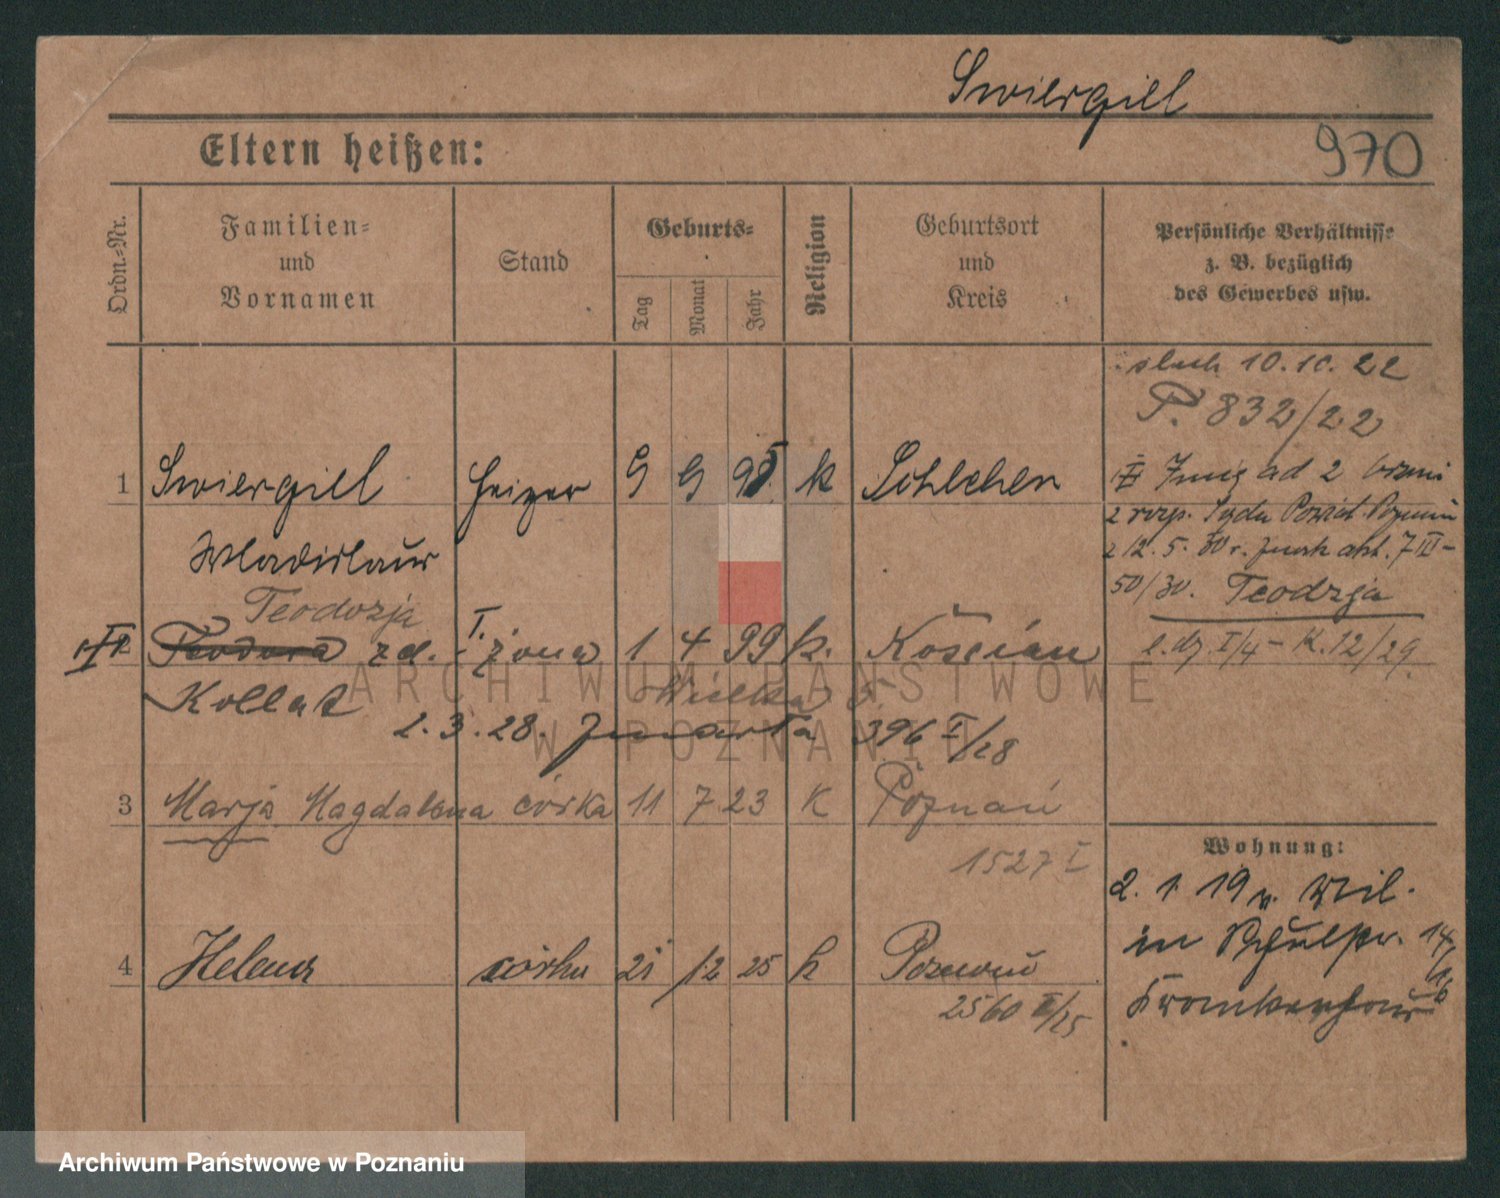 Swiergiel
Eltern heißen:
970
Ordn.=Nr.
Familien=
und
Vornamen
Stand
Geburts=
Tag
Monat
Jahr
Religion
Geburtsort
und
Kreis
Persönliche Verhältnisse
z. B. bezüglich
des Gewerbes usw.
10.10.22
P. 832/22
1 Swiergiel Heizer 9 9 95 k
ad 2
Wladislaus
12.5.30 r.
Teodozja
50/30. Teodzja
2 Teodora zd. I. żona 1 4 99 k. Kościan
I/4 - K.12/29.
Kollat
2.3.28. 396 I/28
3 Marja Magdalena córka 11 7 23 K Poznań
1527 I
Wohnung:
2. 1. 19 v. Wil.
in Schulstr. 14
4 Helena córka 21 12 25 k Poznań
2560 II/25
Krankenhaus
ARCHIWUM PAŃSTWOWE
W POZNANIU
Archiwum Państwowe w Poznaniu